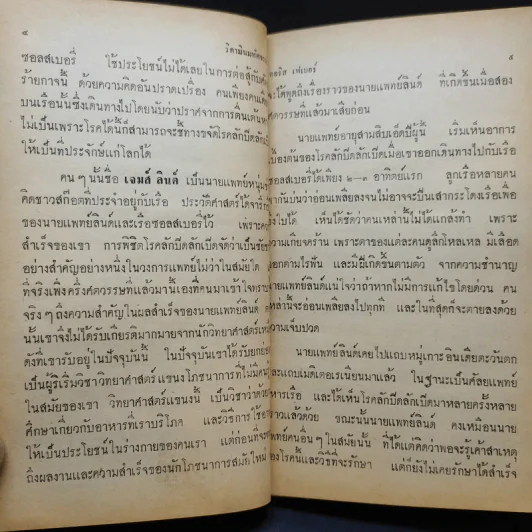 ๔
วิตามินมหัศจรรย์
ซอลสเบอรี่ ใช้ประโยชน์ไม่ได้เลยในการต่อสู้กับ
ร้ายกาจนี้ ด้วยความคิดอันปราดเปรื่อง คนเพียงคนเดียว
บนเรือนั้นซึ่งเดินทางไปโดยนับว่าปราศจากการตื่นเต้น
ไม่เป็นเพราะโรคได้นี้ก็สามารถจะชี้ทางขจัดโรคลักปิดลักเปิด
ให้เป็นที่ประจักษ์แก่โลกได้
คน ๆ นั้นชื่อ เจมส์ ลินด์ เป็นนายแพทย์หนุ่ม
คิดชาวสก๊อตที่ประจำอยู่กับเรือ ประวัติศาสตร์ได้จารึก
ของนายแพทย์ลินด์และเรือซอลสเบอรี่ไว้ เพราะ
สำเร็จของเขา การพิชิตโรคลักปิดลักเปิดจัดว่าเป็นชัย
อย่างสำคัญอย่างหนึ่งในวงการแพทย์ไม่ว่าในสมัยใด
ที่จริงเพิ่งครึ่งศตวรรษที่แล้วมานี้เองที่คนมาเข้าใจ
จริง ๆ ถึงความสำคัญในผลสำเร็จของนายแพทย์ลินด์
นั้นเขาจึงไม่ได้รับเกียรติมากมายจากนักวิทยาศาสตร์
ดังที่เขารับอยู่ในปัจจุบันนี้ ในปัจจุบันเขาได้รับยกย่อง
เป็นผู้ริเริ่มวิชาวิทยาศาสตร์แขนงโภชนาการที่ไม่มี
ในสมัยของเขา วิทยาศาสตร์แขนงนี้ เป็นวิชาว่าด้วย
ศึกษาเกี่ยวกับอาหารที่เราบริโภค และวิธีการใช้
ให้เป็นประโยชน์ในร่างกายของคนเรา แต่ก่อนที่จะ
ถึงผลงานและความสำเร็จของนักโภชนาการสมัยใหม่
๕
คอริส เฟเบอร์
จะได้พูดถึงเรื่องราวของนายแพทย์ลินด์ ที่เกิดขึ้นเมื่อสอง
ศตวรรษที่แล้วมาเสียก่อน
นายแพทย์อายุสามสิบเอ็ดปีผู้นี้ เริ่มเห็นอาการ
เบื้องต้นของโรคลักปิดลักเปิดเมื่อเขาออกเดินทางไปกับเรือ
ซอลสเบอรี่ได้เพียง ๒—๓ อาทิตย์แรก ลูกเรือหลายคน
พากันบ่นว่าอ่อนเพลียลงจนไม่อาจจะปีนเสากระโดงเรือเพื่อ
ไปได้ เห็นได้ชัดว่าคนเหล่านั้นไม่ได้แกล้งทำ เพราะ
ความเกียจคร้าน เพราะตาของแต่ละคนดูลึกโหลเหล มีเลือด
ออกตามไรฟัน และมีผื่เกิดขึ้นตามตัว จากความชำนาญ
นายแพทย์ลินด์แน่ใจว่าถ้าหากไม่มีการแก้ไขโดยด่วน คน
เหล่านี้จะอ่อนเพลียลงไปทุกที และในที่สุดก็จะตายลงด้วย
ความเจ็บปวด
นายแพทย์ลินด์เคยไปแถบหมู่เกาะอินเดียตะวันตก
และแถบเมดิเตอเรเนียนมาแล้ว ในฐานะเป็นศัลยแพทย์
ทหารเรือ และได้เห็นโรคลักปิดลักเปิดมาหลายครั้งหลาย
คราวแล้วด้วย ขณะนั้นนายแพทย์ลินด์ คงเหมือนนาย
แพทย์คนอื่น ๆ ในสมัยนั้น ที่ได้แต่คิดว่าพอจะรู้เค้าสาเหตุ
ของโรคนี้และวิธีที่จะรักษา แต่ก็ยังไม่เคยรักษาได้สำเร็จ